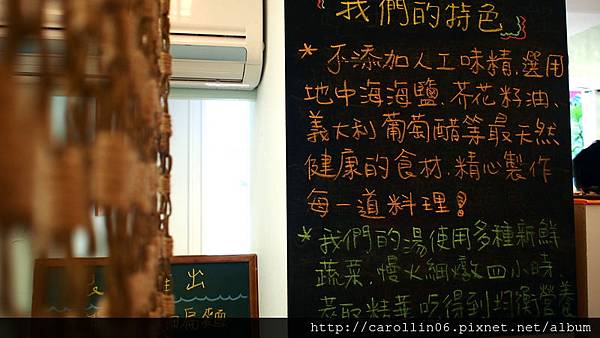 我們的特色
* 不添加人工味精.選用
地中海海鹽.芥花籽油、
義大利葡萄醋等最天然
健康的食材.精心製作
每一道料理!
* 我們的湯使用多種新鮮
蔬菜.慢火細燉四小時.
萃取精華吃得到均衡營養
出
扁麵
http://carollin06.pixnet.net/album